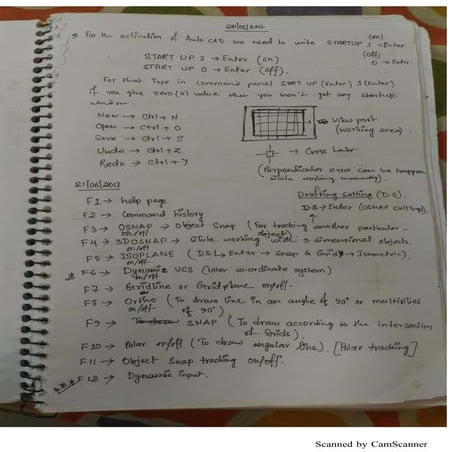 20/06/2017
* For the activation of Auto CAD we need to write STARTUP 1 → Enter (on)
(off)
0 → Enter
START UP 1 → Enter (on)
START UP 0 → Enter (off).
For that Type in command panel START UP (Enter) 1 (Enter)
if you give zero(0) value then you won't get any startup
window.
New → Ctrl + N
Open → Ctrl + O
Save → Ctrl + S
Undo → Ctrl + Z
Redo → Ctrl + Y
View port.
(Working area).
→ Cross hair
(Perpendicular error can be happen
while working manually).
21/06/2017
Drafting setting (D.S).
DS → Enter (OSNAP setting)
F1 → help page
F2 → Command history
F3 → OSNAP → Object Snap (For tracking another particular
on/off object)
F4 → 3DOSNAP → While working with 3 dimentional objects.
on/off
F5 → ISOPLANE (DS → Enter → Snap & Grid → Isometric).
on/off
* F6 → Dynamic UCS (User co-ordinate system)
on/off
F7 → Gridline or Gridplane on/off.
F8 → Ortho (To draw line in an angle of 90° or multiplies
on/off of 90°)
F9 → SNAP (To draw according to the intersection
of Grids).
F10 → Polar on/off (To draw angular line). [Polar tracking]
F11 → Object Snap tracking on/off.
*** F12 → Dynamic input.
Scanned by CamScanner